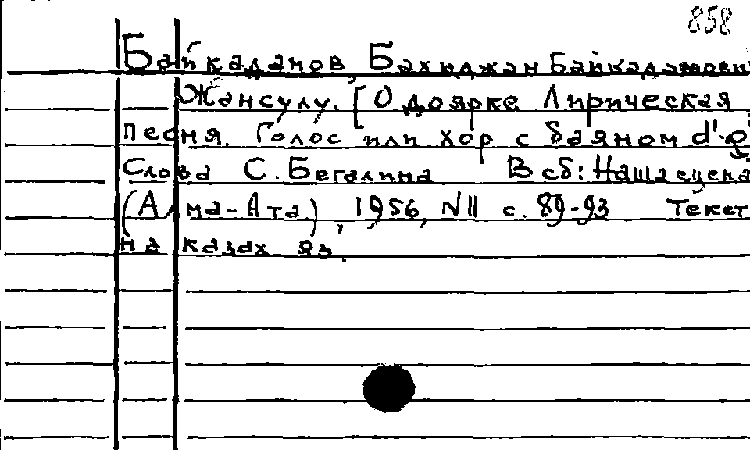 858
Байкадамов, Бахиджан Байкадамови
Жансулу. [О доярке Лирическая
песня. Голос или хор с баяном d'-g
Слова С. Бегалина В сб: Наша сцена
(Алма-Ата), 1956, N11 с. 89-93 Текст
на казах яз.